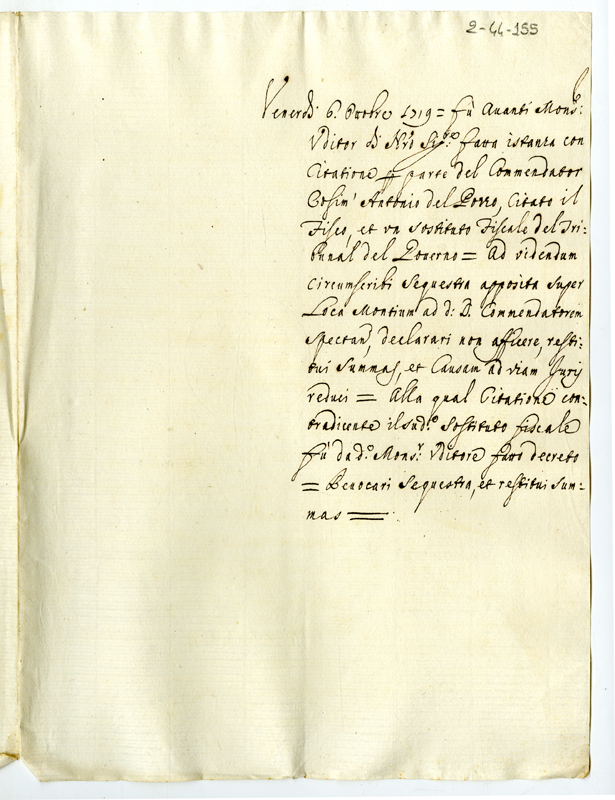 2-44-155
Venerdì 6. Ottobre 1719 = fù Avanti Mons.r
Uditor di N.ro Sig.re fatta istanza con
Citatione p parte del Commendator
Cosim' Antonio del Pozzo, Citato il
Fisco, et un sostituto Fiscale del Tri:
bunal del Governo = Ad videndum
circumscribi sequestra apposita super
Loca Montium ad d: D. Commendatorem
spectan', declarari non afficere, resti:
tui summas, et Causam ad viam Juris
reduci = Alla qual Citatione con:
tradicente il sud.o sostituto fiscale
fù da d.o Mons.r Uditore fatto decreto
= Revocari sequestra, et restitui sum:
mas =